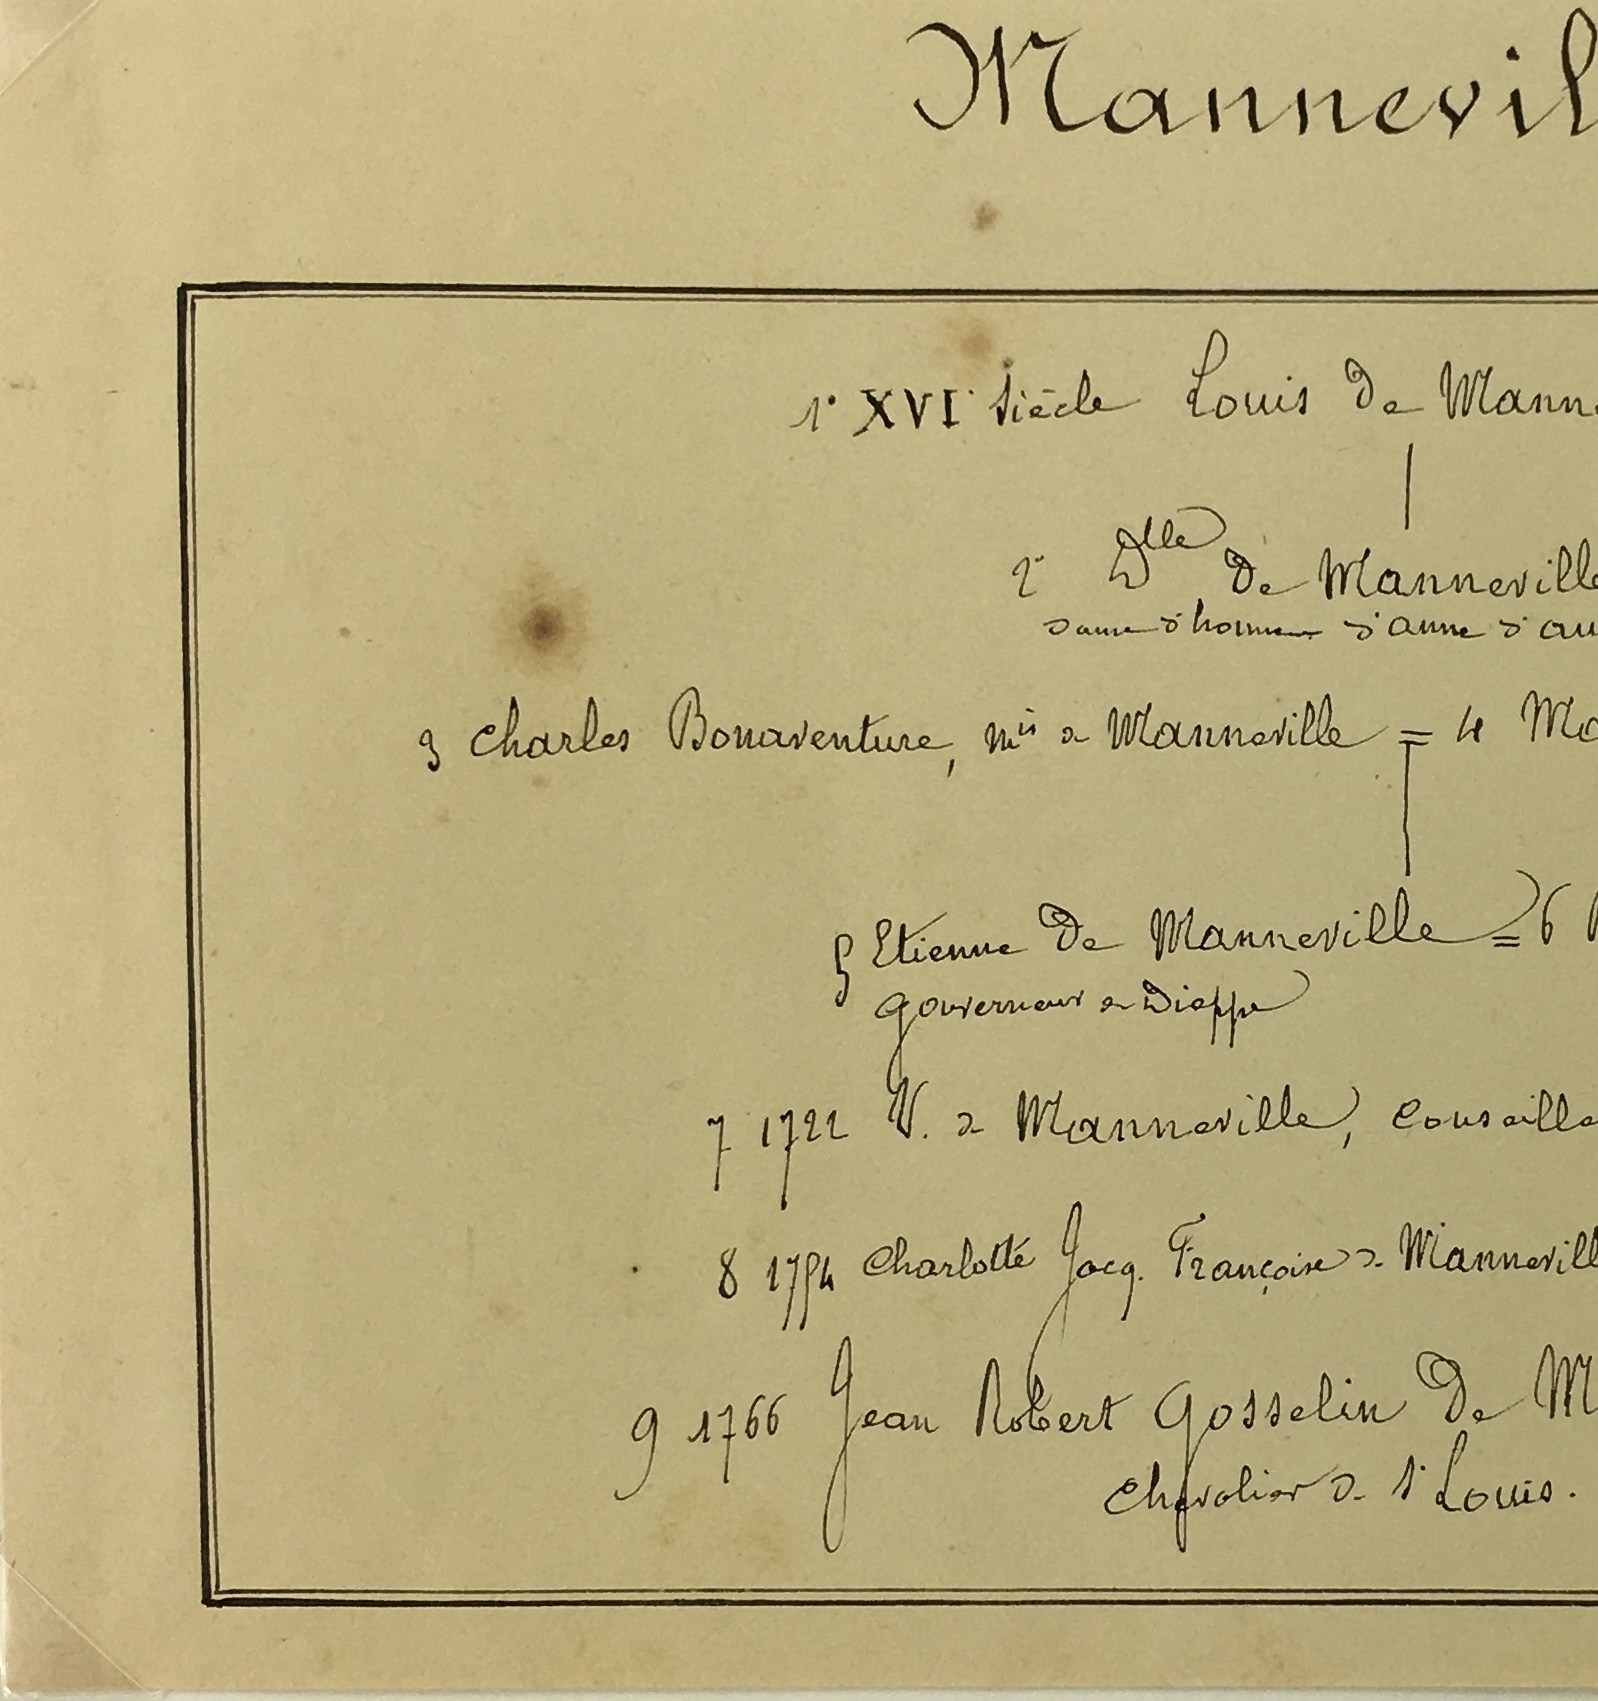 Mannevil
1° XVIe Siècle Louis de Manne
2° Dlle de Manneville
dame d'honneur d'anne d'au
3 Charles Bonaventure, mis de Manneville = 4 Ma
5 Etienne de Manneville = 6
gouverneur de Dieppe
7 1722 N. de Manneville, Conseille
8 1754 Charlotte Jacq. Françoise de Mannevill
9 1766 Jean Robert Gosselin de M
Chevalier de St Louis.